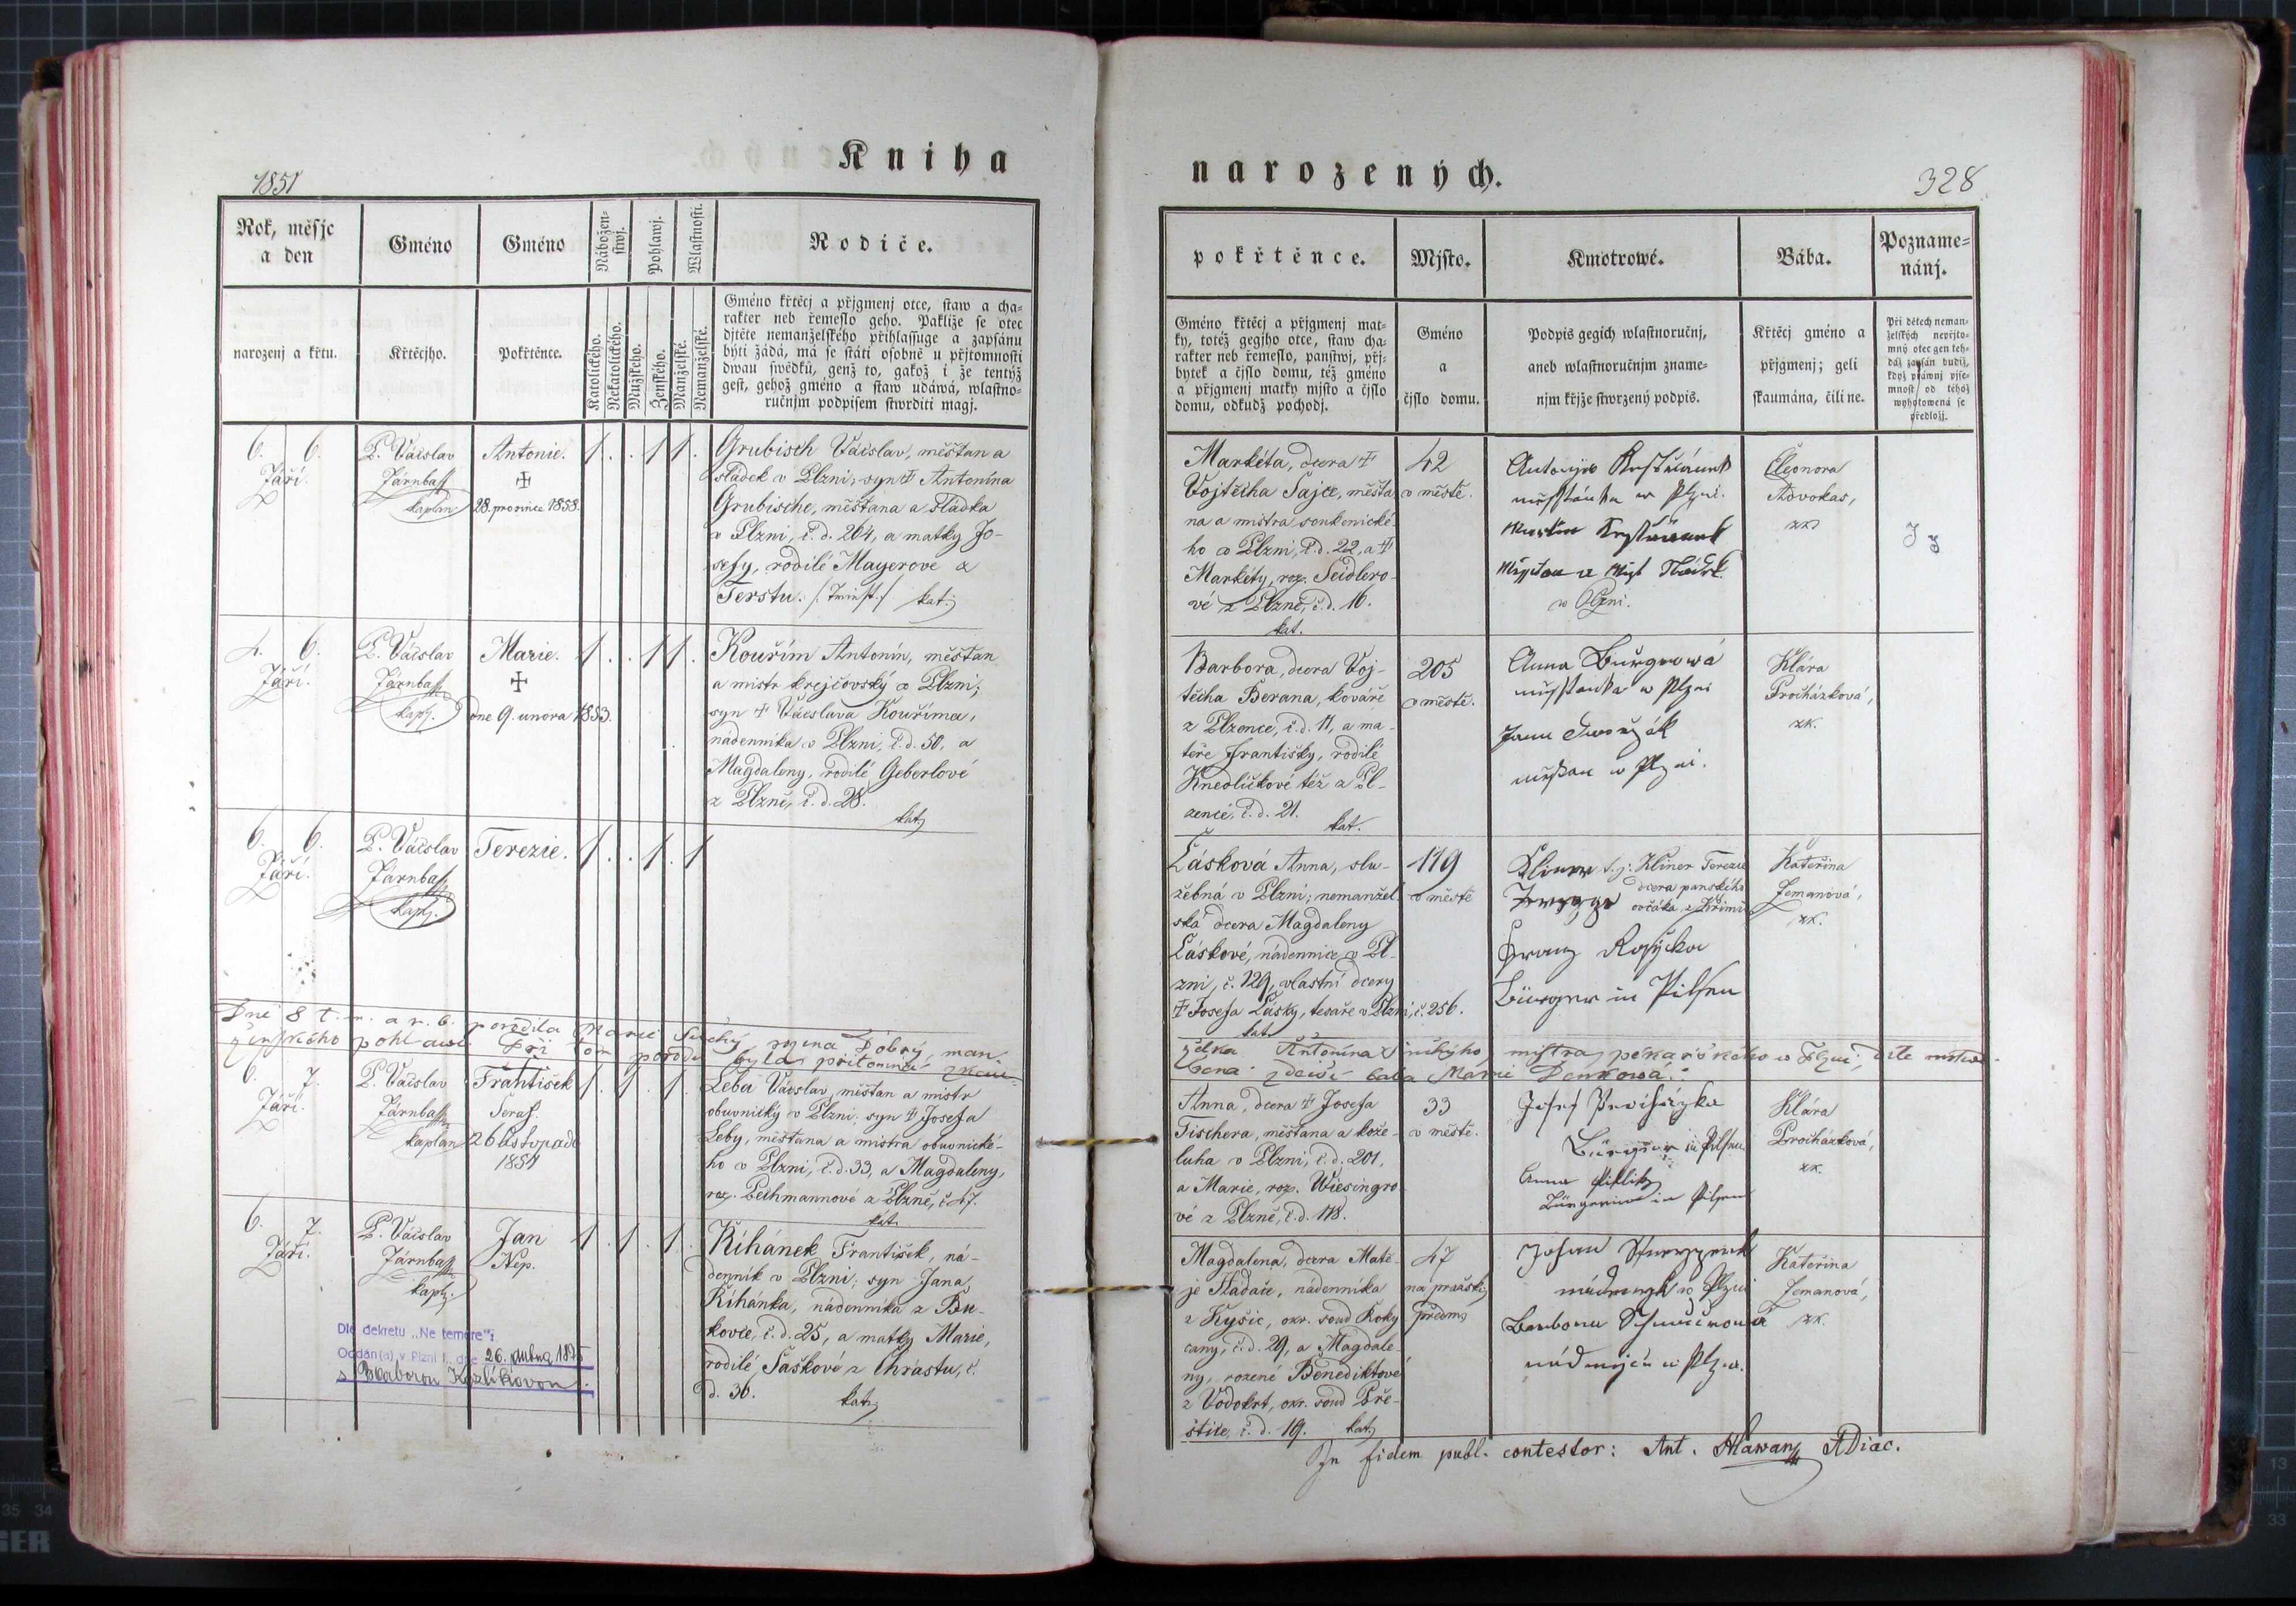 Kniha
1851
Rok, měsjc
a den
Gméno
Gméno
Nábožen-
stwj.
Pohlawj.
Wlastnosti.
Rodiče.
narozenj a křtu.
Křtěcjho.
Pokřtěnce.
Katolického.
Nekatolického.
Mužského.
Ženského.
Manželské.
Nemanželské.
Gméno křtěcj a přjgmenj otce, staw a cha-
rakter neb řemeslo geho. Pakliže se otec
djtěte nemanželského přihlassuge a zapsánu
býti žádá, má se státi osobně u přjtomnosti
dwau swědků, genž to, gakož i že tentýž
gest, gehož gméno a staw udáwá, wlastno-
ručnjm podpisem stwrditi magj.
6. 6.
Září.
P. Václav
Járnbaß
kaplan
Antonie.
✝
28. prosince 1858.
1 . . 1 1 .
Grubisch Václav, měšťan a
sládek v Plzni; syn ✝ Antonína
Grubische, měšťana a sládka
v Plzni, č. d. 264, a matky Jo-
sefy, rodilé Mayerové z
Terstu. kat.
4. 6.
Září.
P. Václav
Járnbaß
kapl.
Marie.
✝
dne 9. února 1853.
1 . . 1 1 .
Kouřím Antonín, měšťan
a mistr krejčovský v Plzni;
syn ✝ Václava Kouříma,
nádenníka v Plzni, č. d. 50, a
Magdaleny, rodilé Geberlové
z Plzně, č. d. 28.
kat.
6. 6.
Září.
P. Václav
Járnbaß
kapl.
Terezie.
1 . . 1 . 1
Dne 8 t. m. a r. b. porodila Marie Suchý, rozena Dobrý, man-
ženského pohlawí. Při tom porodu byla přítomná zkou-
6. 7.
Září.
P. Václav
Járnbaß
kaplan
František
Seraf.
26 listopadu
1851
1 . 1 . 1 .
Leba Václav, měšťan a mistr
obuvnický v Plzni; syn ✝ Josefa
Leby, měšťana a mistra obuvnické-
ho v Plzni, č. d. 33, a Magdaleny,
roz. Pechmannové z Plzně, č. 47.
kat.
6. 7.
Září.
P. Václav
Járnbaß
kapl.
Jan
Nep.
1 . 1 . 1 .
Říhánek František, ná-
denník v Plzni; syn Jana
Říhánka, nádenníka z Bu-
kovce, č. d. 25, a matky Marie,
rodilé Šaškové z Chrástu, č.
d. 36. kat.
Dle dekretu „Ne temere“:
Oddán(a) v Plzni I., dne 26. dubna 1875
s Barborou Kozlíkovou.
narozených.
328
pokřtěnce.
Mjsto.
Kmotrowé.
Bába.
Pozname-
nánj.
Gméno křtěcj a přjgmenj mat-
ky, totéž gegjho otce, staw cha-
rakter neb řemeslo, panstwj, přj-
bytek a čjslo domu, též gméno
a přjgmenj matky mjsto a čjslo
domu, odkudž pochodj.
Gméno
a
čjslo domu.
Podpis gegich wlastnoručnj,
aneb wlastnoručnjm zname-
njm křjže stwrzený podpis.
Křtěcj gméno a
přjgmenj; geli
skaumána, čili ne.
Při dětech neman-
želských nepřjto-
mný otec gen teh-
dáž zapsán budiž,
když práwnj pjse-
mnost od téhož
wyhotowená se
předložj.
Markéta, dcera ✝
Vojtěcha Sajce, měšťa-
na a mistra soukenické-
ho v Plzni, č. d. 22, a ✝
Markéty, roz. Seidlero-
vé z Plzně, č. d. 16.
kat.
42
v městě.
w Plzni.
w Plzni.
Eleonora
Advokas,
zk.
Barbora, dcera Voj-
těcha Berana, kováře
z Plzence, č. d. 11, a ma-
teře Františky, rodilé
Knedlíčkové též z Pl-
zence, č. d. 21.
kat.
205
v městě.
Anna Burgrowá
w Plzni
w Plzni.
Klára
Procházková,
zk.
Lásková Anna, slu-
žebná v Plzni; nemanžel-
ská dcera Magdaleny
Láskové, nádennice v Pl-
zni, č. 129, vlastní dcery
✝ Josefa Lásky, tesaře v Plzni, č. 256.
kat.
119
v městě
t. j: Kliner Terezie
dcera panského
ovčáka z Křimic
Franz Rosýcka
Bürger in Pilsen
Kateřina
Zemanová,
zk.
želka Antonína Suchýho, mistra pekařského w Plzni; díte mrtvo-
zdejší bába Marie Denkowá.
Anna, dcera ✝ Josefa
Fischera, měšťana a kože-
luha v Plzni, č. d. 201,
a Marie, roz. Wiesingro-
vé z Plzně, č. d. 118.
33
v městě.
Josef Procházka
Bürger in Pilsen
Anna
Bürgerin in Pilsen
Klára
Procházková,
zk.
Magdalena, dcera Matě-
je Sládače, nádenníka
z Kyšic, okr. soud Roky-
cany, č. d. 29, a Magdale-
ny, rozené Benediktové
z Vodokrt, okr. soud Pře-
štice, č. d. 19. kat.
47
na pražském
předm.
Johan
w Plzni
Barbora
w Plzni.
Kateřina
Zemanová,
zk.
In fidem publ. contestor: Ant. Hlawan ADiac.